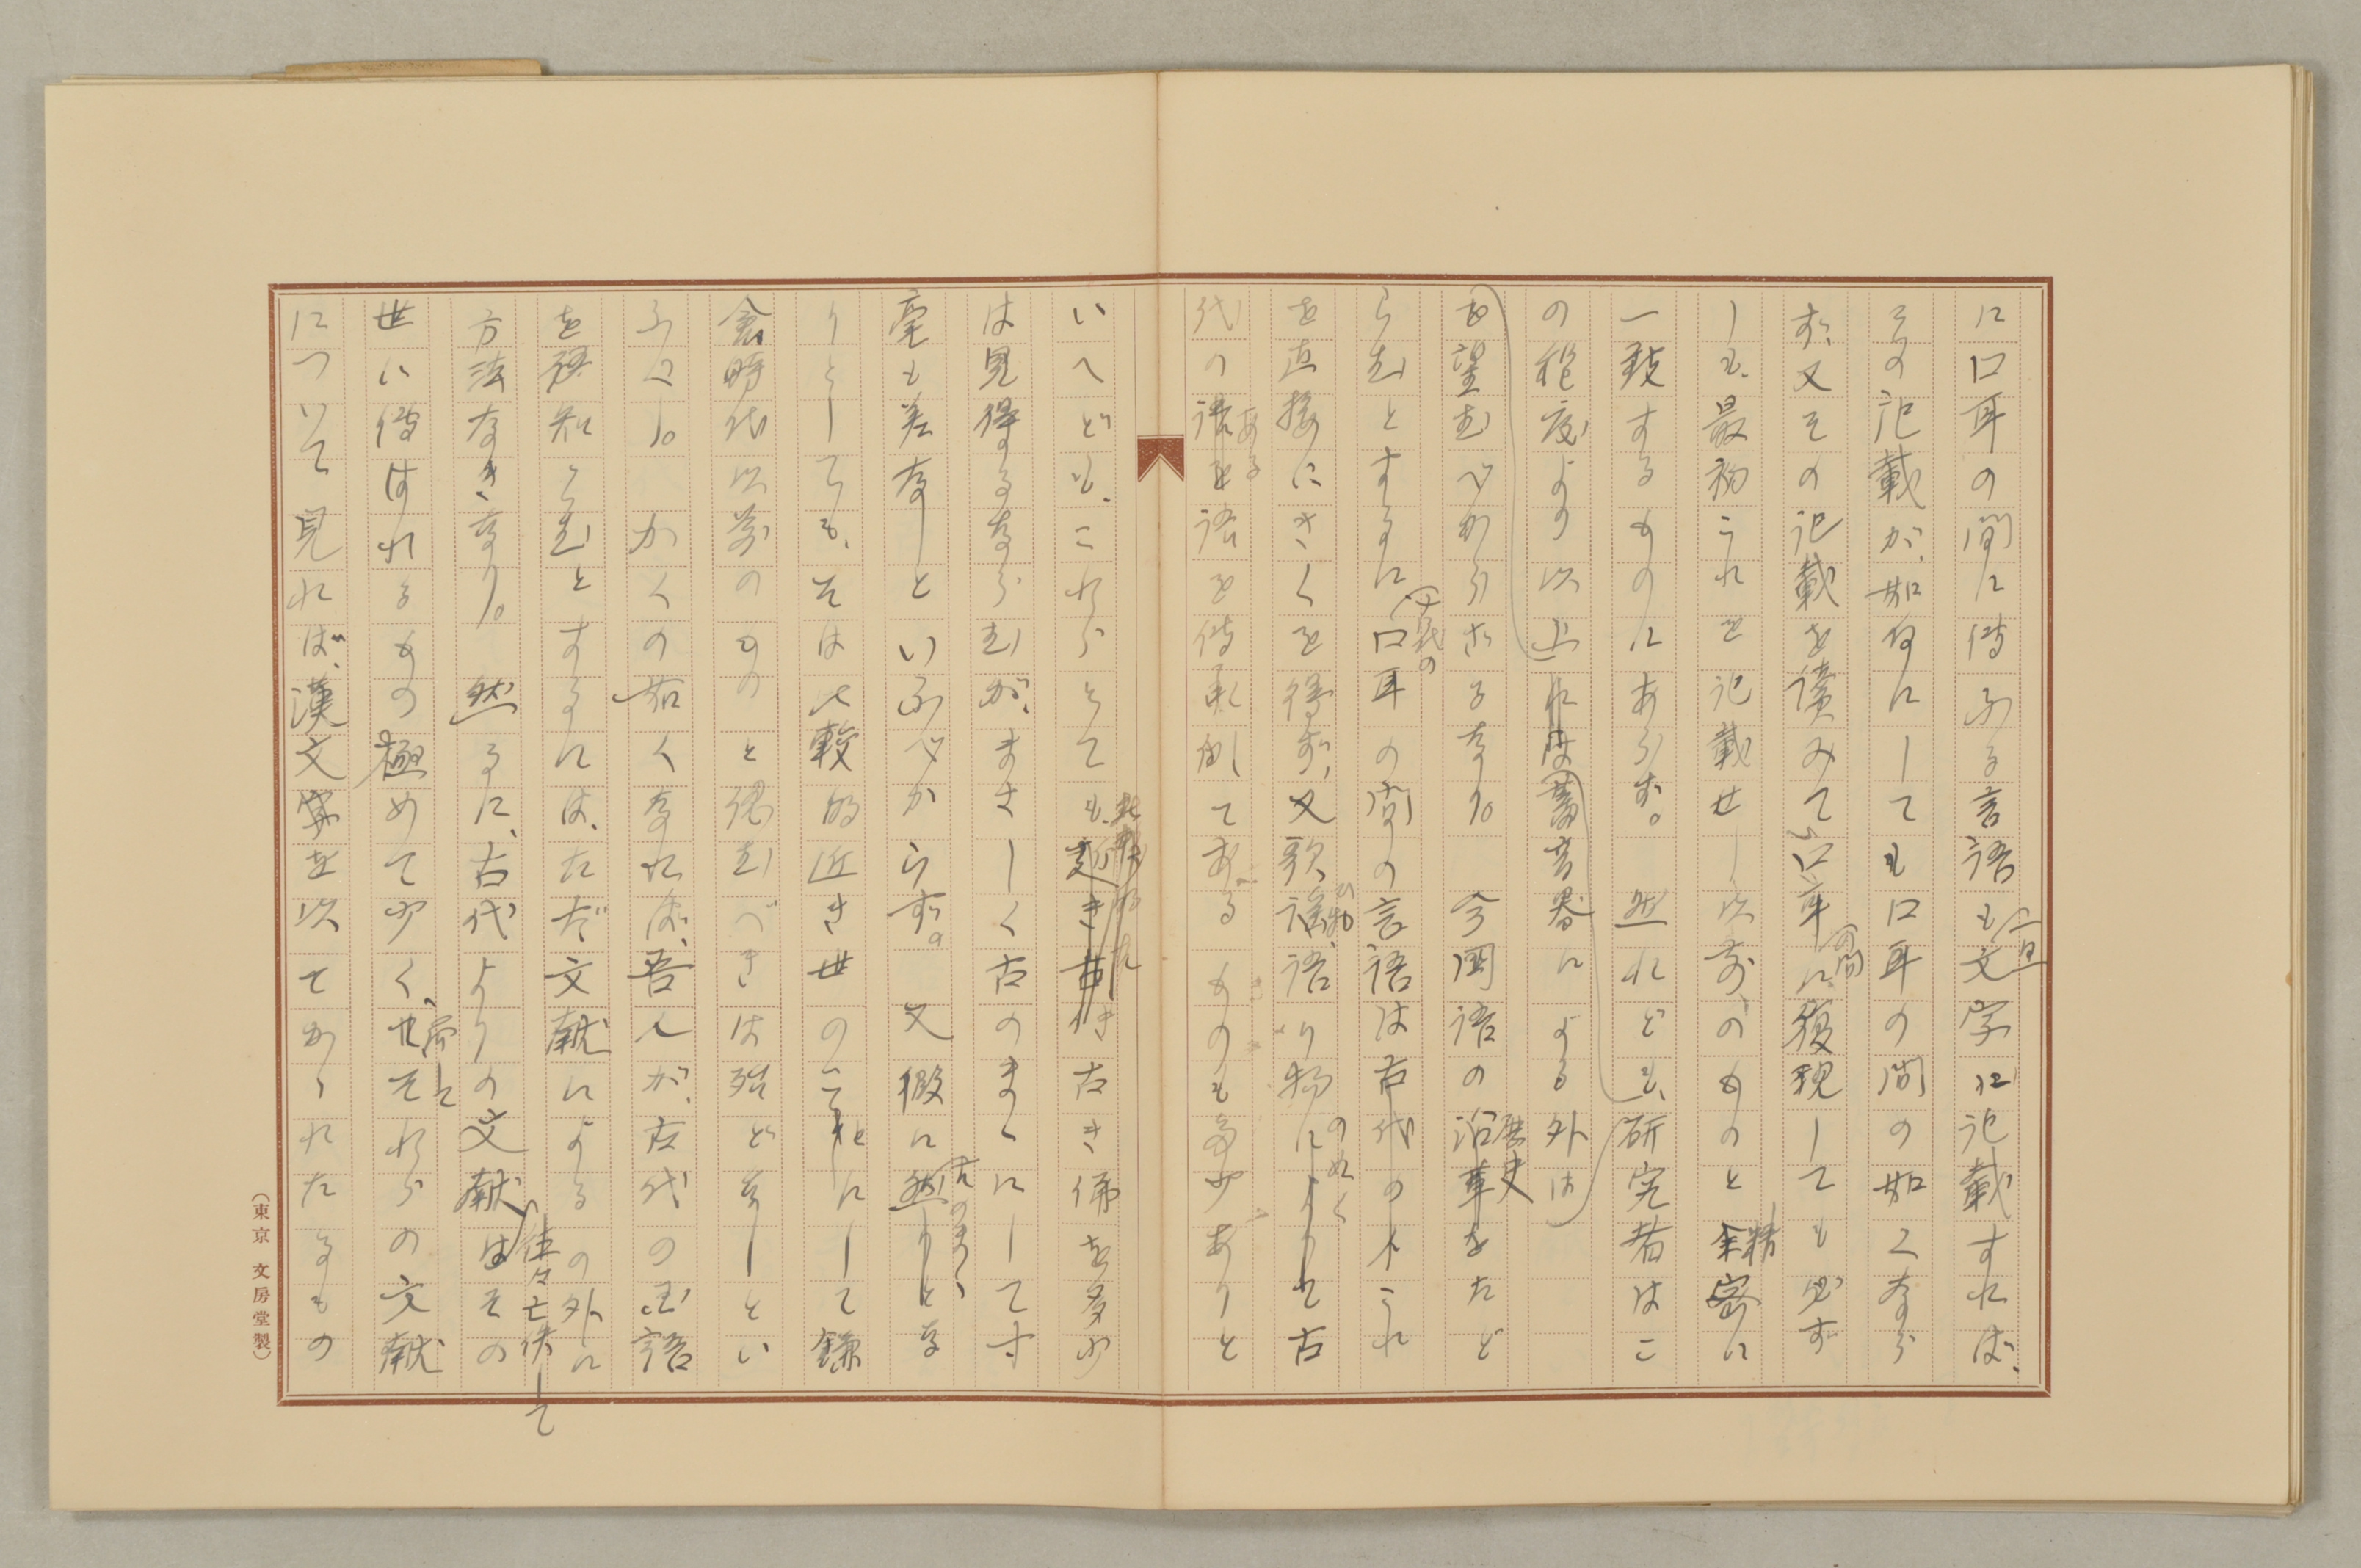 に口耳の間に傳ふる言語も一旦文字に記載すれば、
その記載が、如何にしても口耳の間の如くなら
ず、又その記載を讀みて口耳の間に復現しても必ず
しも、最初これを記載せし以前、のものと精密に
一致するものにあらず。然れども、研究者はこ
の程度より以上には蓄音器による外は
望むべからざるなり。今國語の歴史など
らむとするに口耳の間の言語は古代のは、これ
を直接にきくを得ず、又歌謡、語り物によりて古
代のある語を傳承してあるものも多少ありと
いへども、これらとても、古き俤を多少
は見得るならむが、まさしく古のまゝにして寸
毫も差なしといふべからず。又假に古のまゝな
りとしても、そは比較的近き世のことにして鎌
倉時代以前のものと認むべきは殆どなしとい
ふべし。かくの如くなれば、吾人が、古代の國語
を研知せむとするには、ただ文献によるの外に
方法なきなり。然るに、古代よりの文献は往々亡佚してその
世に傳はれるもの極めて少く、而してそれらの文献
について見れば、漢文を以てかゝれたるもの
(東京 文房堂製)